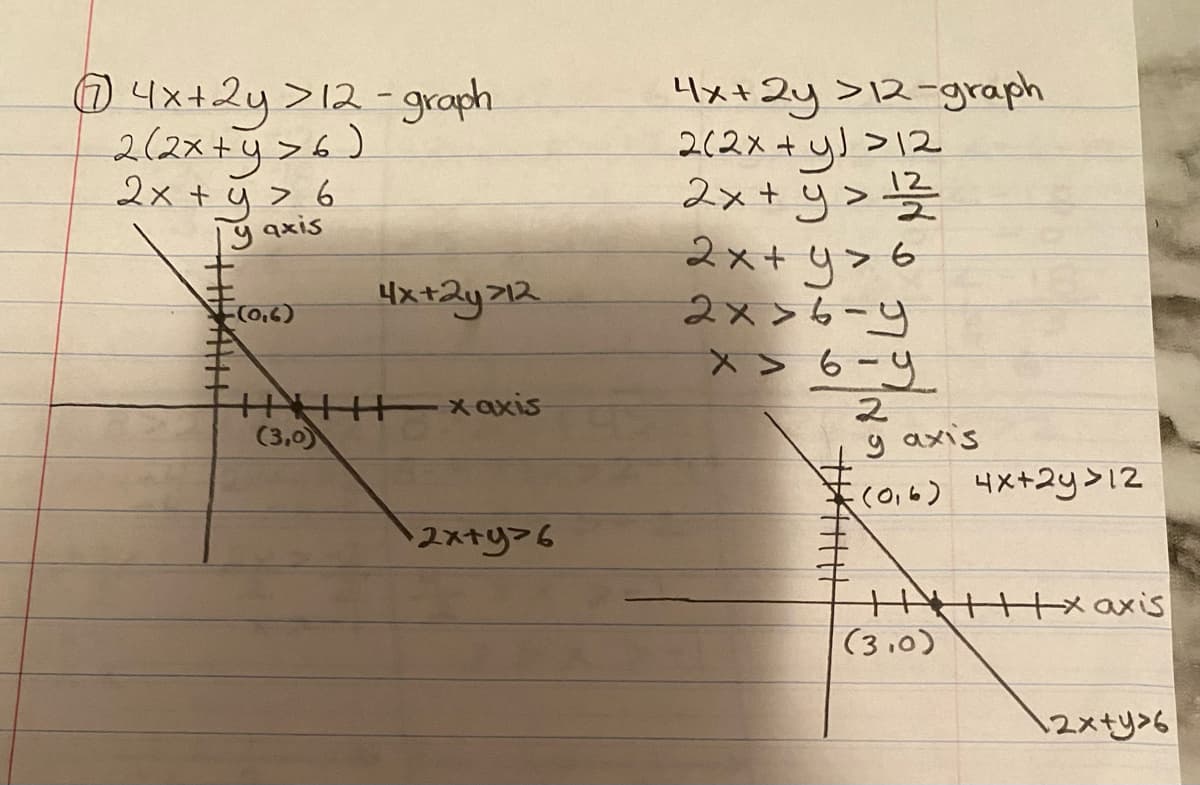 ⑦ 4x+2y >12 - graph
2(2x+y >6)
2x + y > 6
y axis
(0,6)
4x+2y>12
x axis
(3,0)
2x+y>6
4x+2y >12-graph
2(2x+y) >12
2x + y > 12/2
2x+ y > 6
2x > 6-y
x > 6-y
2
y axis
(0,6) 4x+2y>12
x axis
(3,0)
2x+y>6